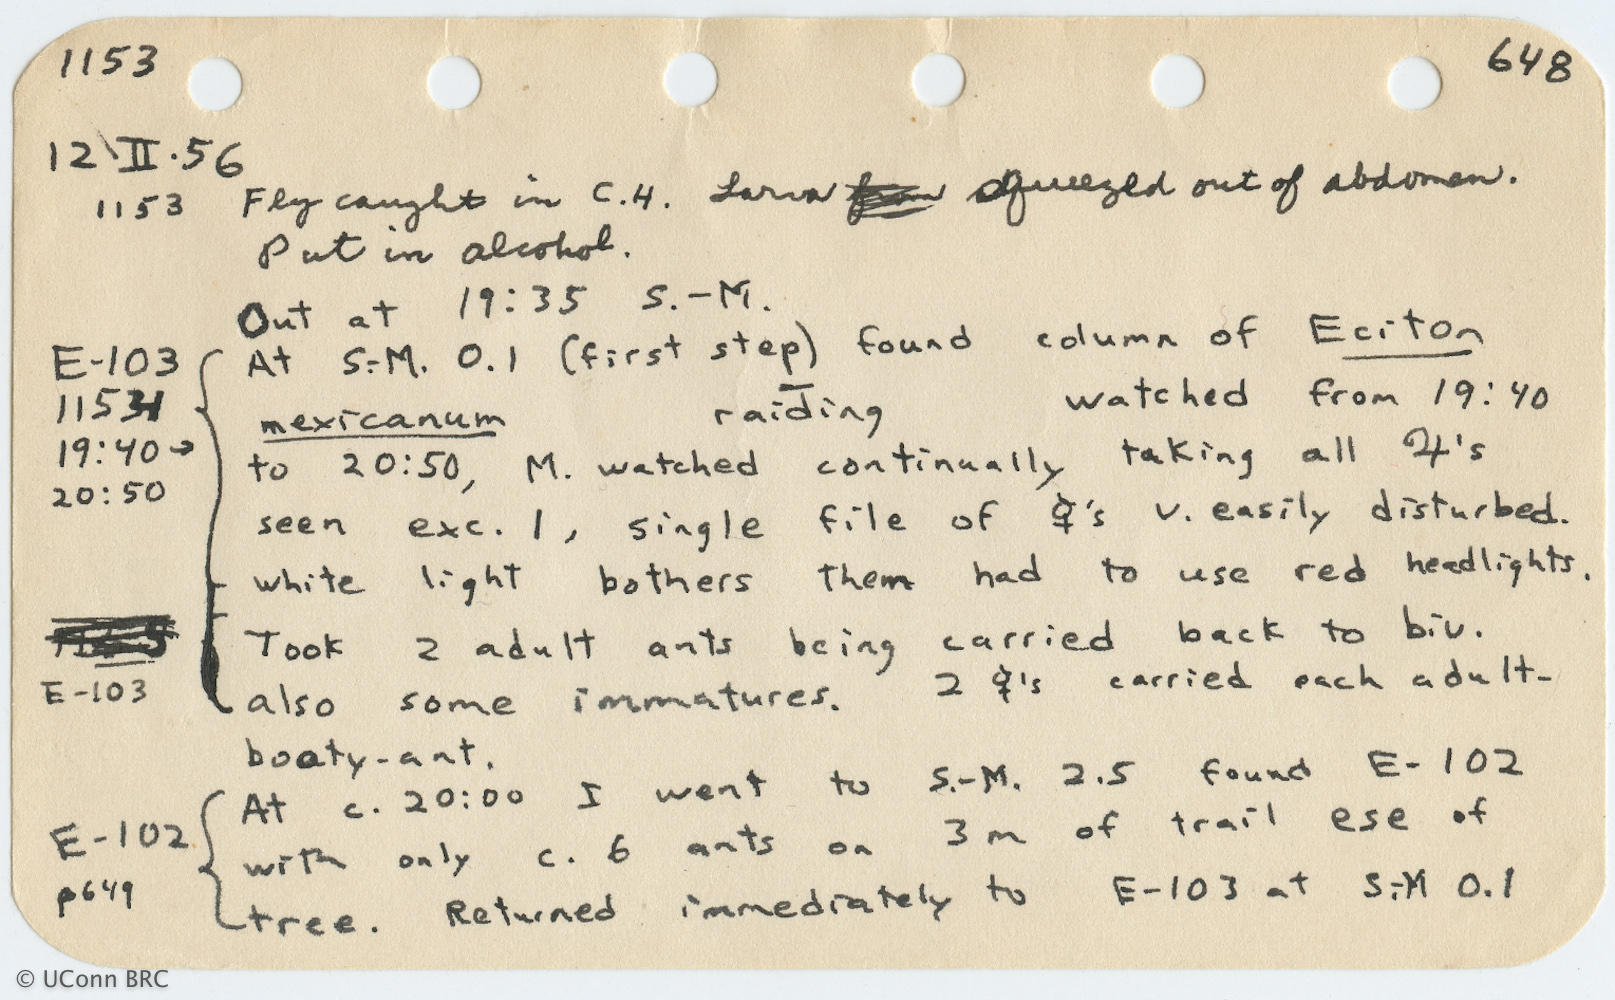 1153 648
12\II.56
1153 Fly caught in C.H. Larva squeezed out of abdomen.
Put in alcohol.
Out at 19:35 S.-M.
E-103 At S.-M. 0.1 (first step) found column of Eciton
11531 mexicanum raiding watched from 19:40
19:40→ to 20:50, M. watched continually taking all ♃'s
20:50
seen exc. 1, single file of ☿'s v. easily disturbed.
white light bothers them had to use red headlights.
Took 2 adult ants being carried back to biv.
E-103 also some immatures. 2 ☿'s carried each adult-
booty-ant.
At c. 20:00 I went to S.-M. 2.5 found E-102
E-102 with only c. 6 ants on 3 m of trail ese of
p649 tree. Returned immediately to E-103 at S.-M 0.1
© UConn BRC